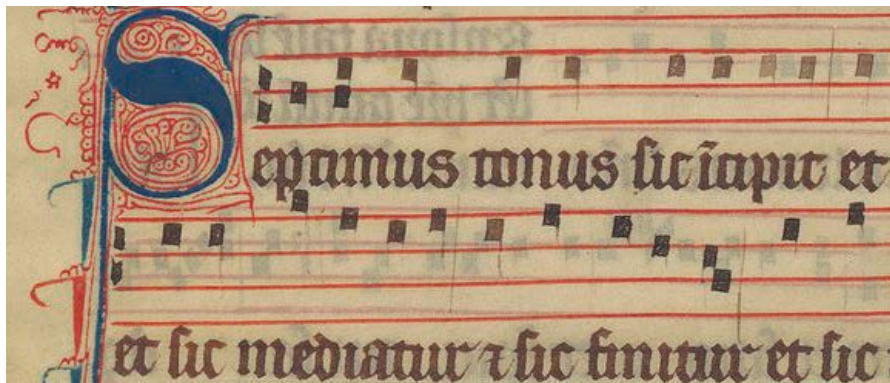 Septimus tonus sic īcipit et
et sic mediatur ⁊ sic finitur et sic